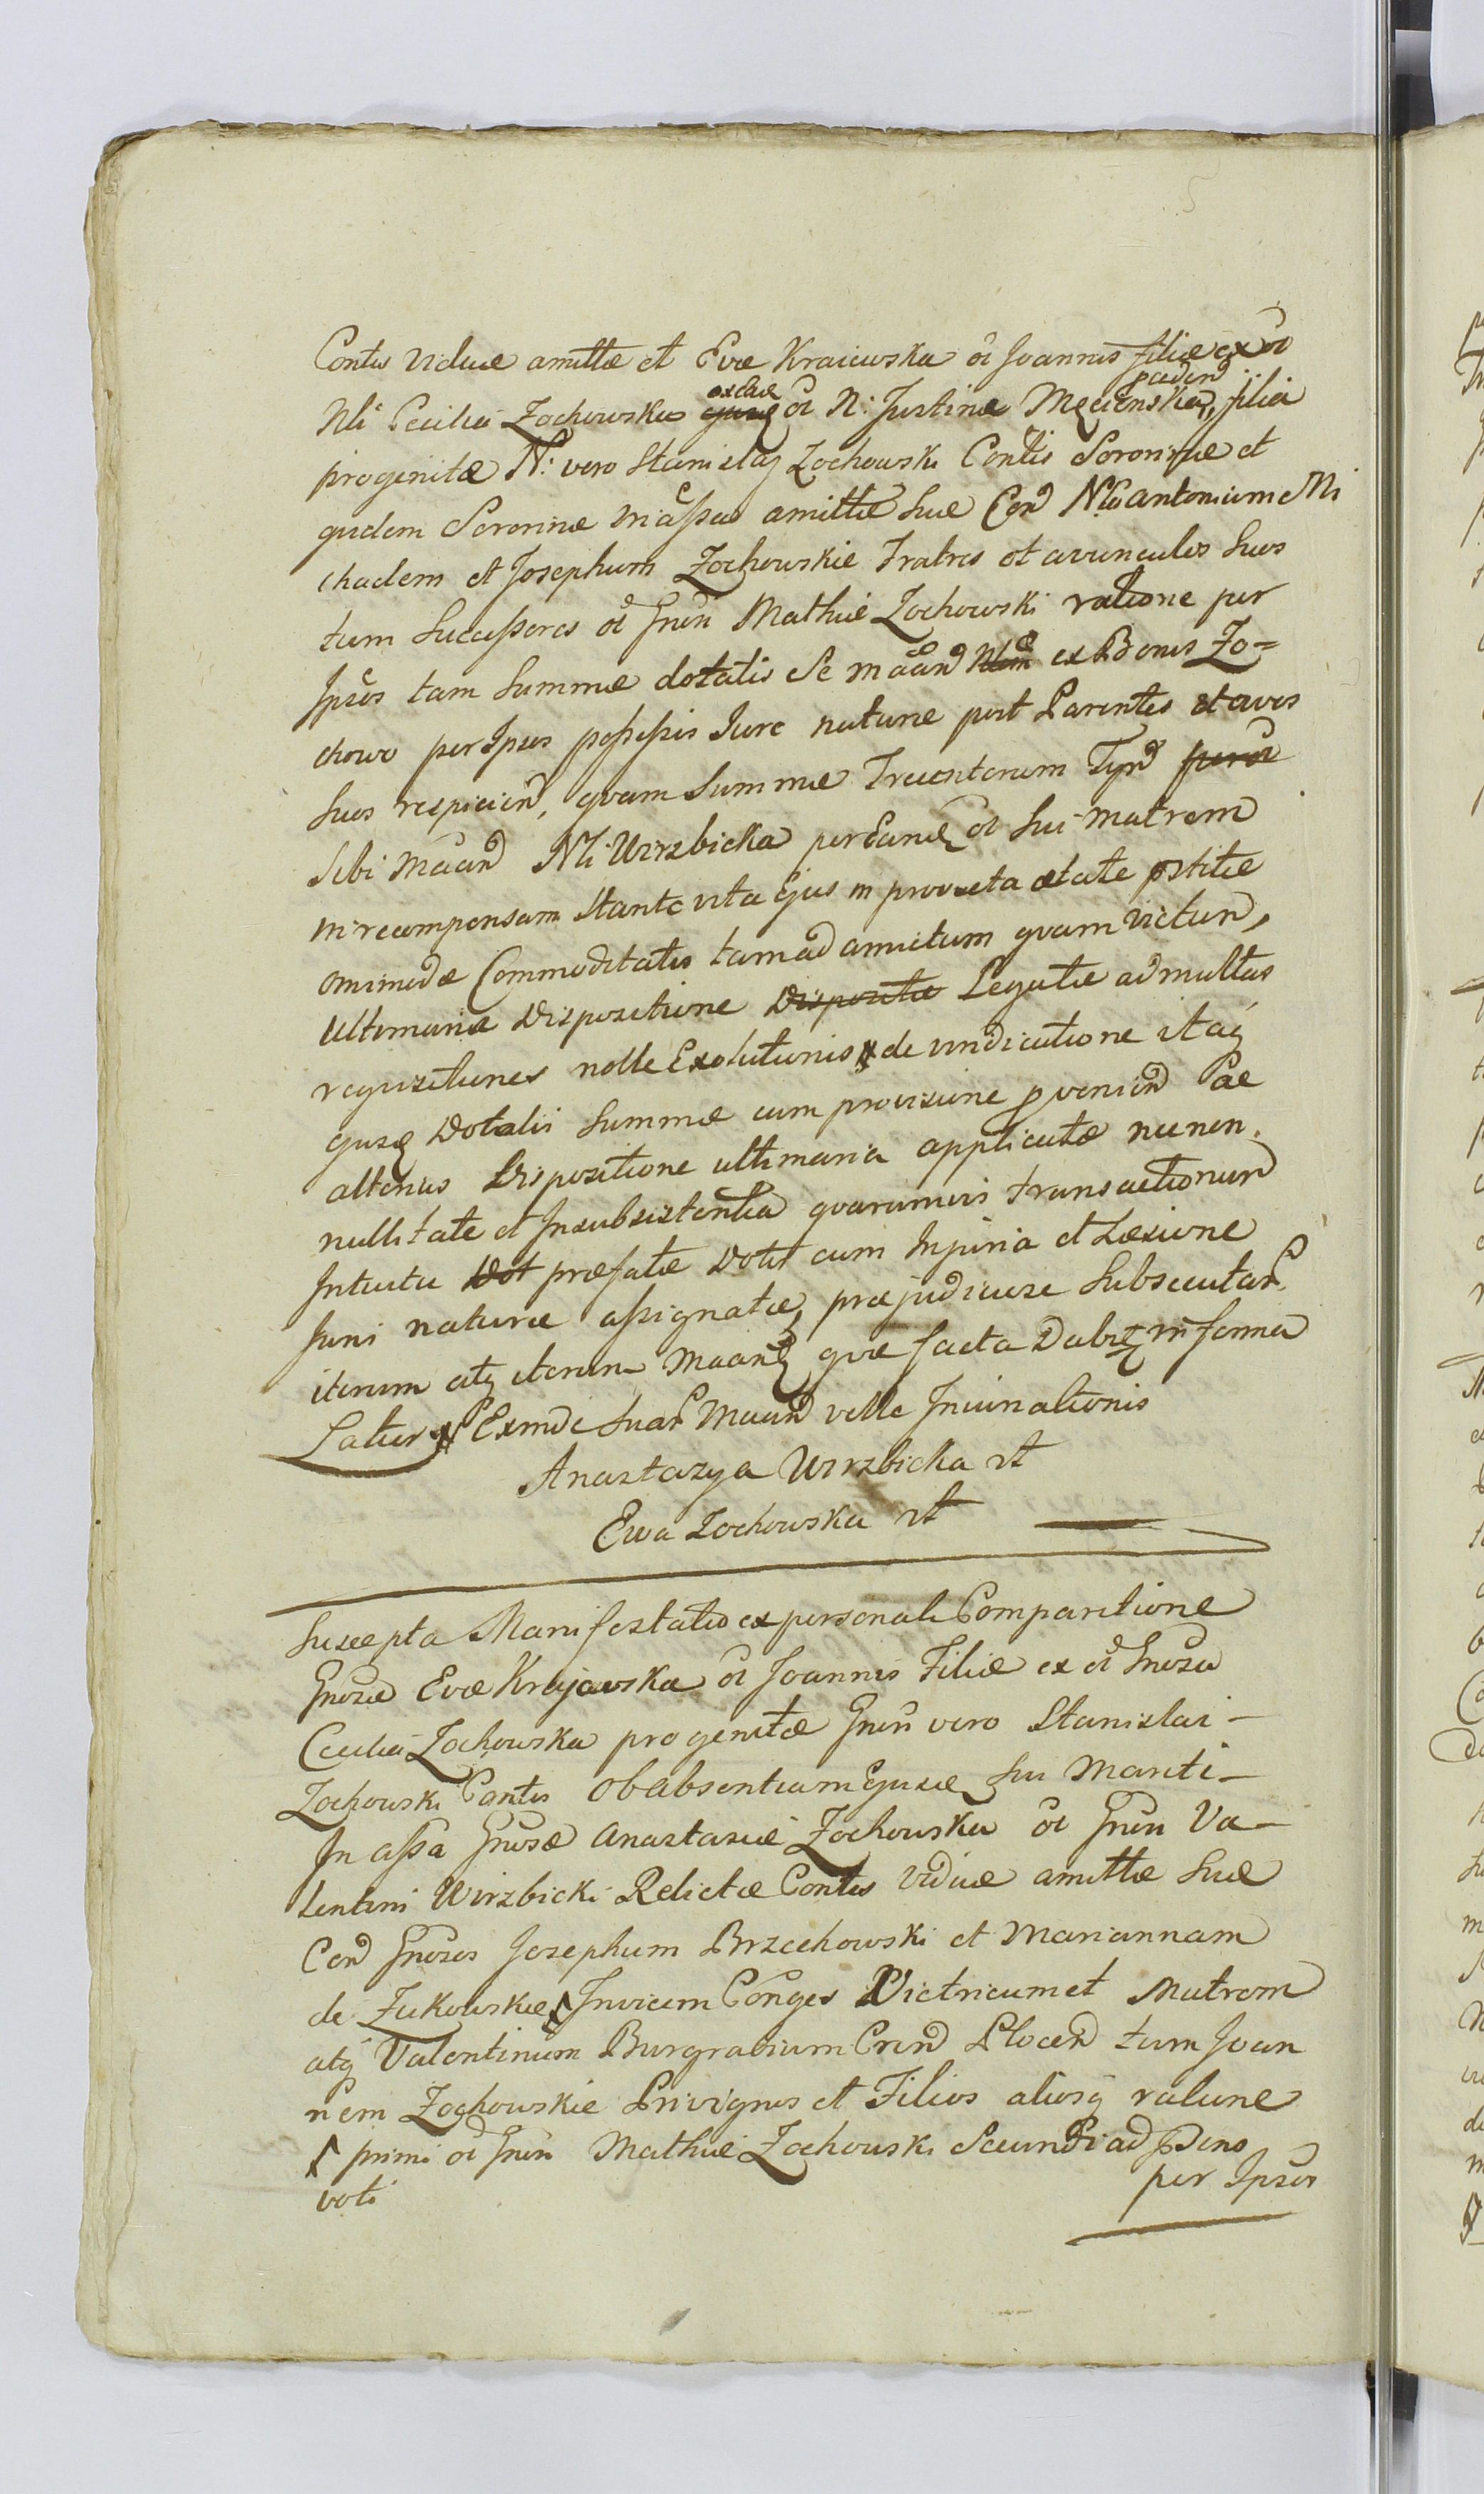 Contis viduæ amittæ et Evæ Kraiewska ōi Joannis filiæ ex ōi
exeadē pcedend
Nli Cecilia Zochowska ōi N: Justinæ Męcienska, filia
progenitæ N: vero Stanislaj Zochowski Contis Sororinæ et
quidem Sororinæ in aſsa amittæ suæ Cond Nlo Antonium Mi
chaelem et Josephum Zochowskie Fratres et avunculos suos
tum Succeſsores ōi Gnen Mathiæ Zochowski ratione per
Ipsos tam Summæ dotalis Se maand ex Bonis Zo=
chowo per Ipsos poſseſsis Jure naturæ post Parentes et avos
suos respiciend, qvam Summæ Trecentorum Tynf
sibi maand Nli Wirzbicka per Eandē ōi sui matrem
in recompensam stante vita Ejus in provecta ætate pstitæ
omnimodæ Commoditatis tam ad amictum qvam victum,
ultimaria Dispositione Legatæ ad multas
reqvisitiones nolle Exolutionis de vindicatione itaq
ejusq Dotalis Summæ cum provisione pveniend ae
altenus Dispositione ultimaria applicatæ necnon
nullitate et Insubsistentia qvarumvis transactionum
Intuitu præfatæ Dotis cum Injuria et Læsione
Juris naturæ aſsignatæ, præjudiciose Subsecutar
iterum atq iterum Maand qvæ facta Dabit in forma
Latior Exinde suar Maand velle Iniunationis
Anastazya Wirzbicka rt
Ewa Zochowska rt
Suscepta Manifestatio ex personali Comparitione
Gnosæ Evæ Krajewska ōi Joannis Filiæ ex ōi Gnosa
Cecilia Zochowska progenitæ Gnen vero Stanislai
Zochowski Contis ob absentiam Ejusdē sui Mariti
In aſsa Gnosæ Anastasiæ Zochowska ōi Gnen Va
lentini Wirzbicki Relictæ Contis viduæ amittæ suæ
Cond Gnosos Josephum Brzechowski et Mariannam
de Zukowskie Invicem Conges Victricum et Matrem
atq Valentinum Burgrabium Crend Plocen tum Joan
nem Zochowskie Privignos et Filios aliosq ratione
primi ōi Gnen Mathiæ Zochowski Secundi ad pdens
voti
per Ipsos